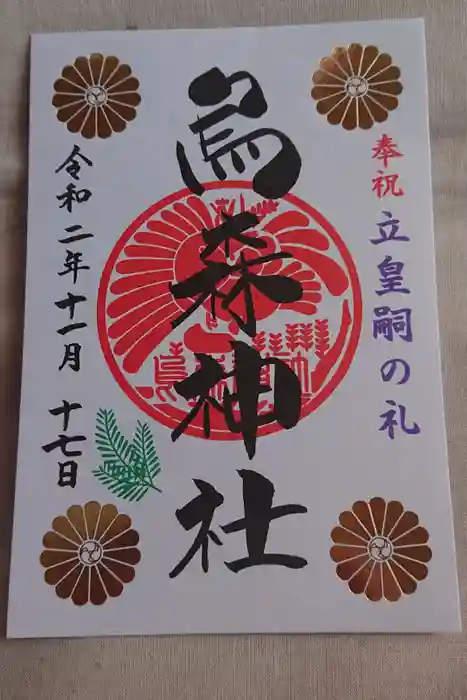 奉祝
立皇嗣の礼
烏森神社
令和二年十一月 十七日